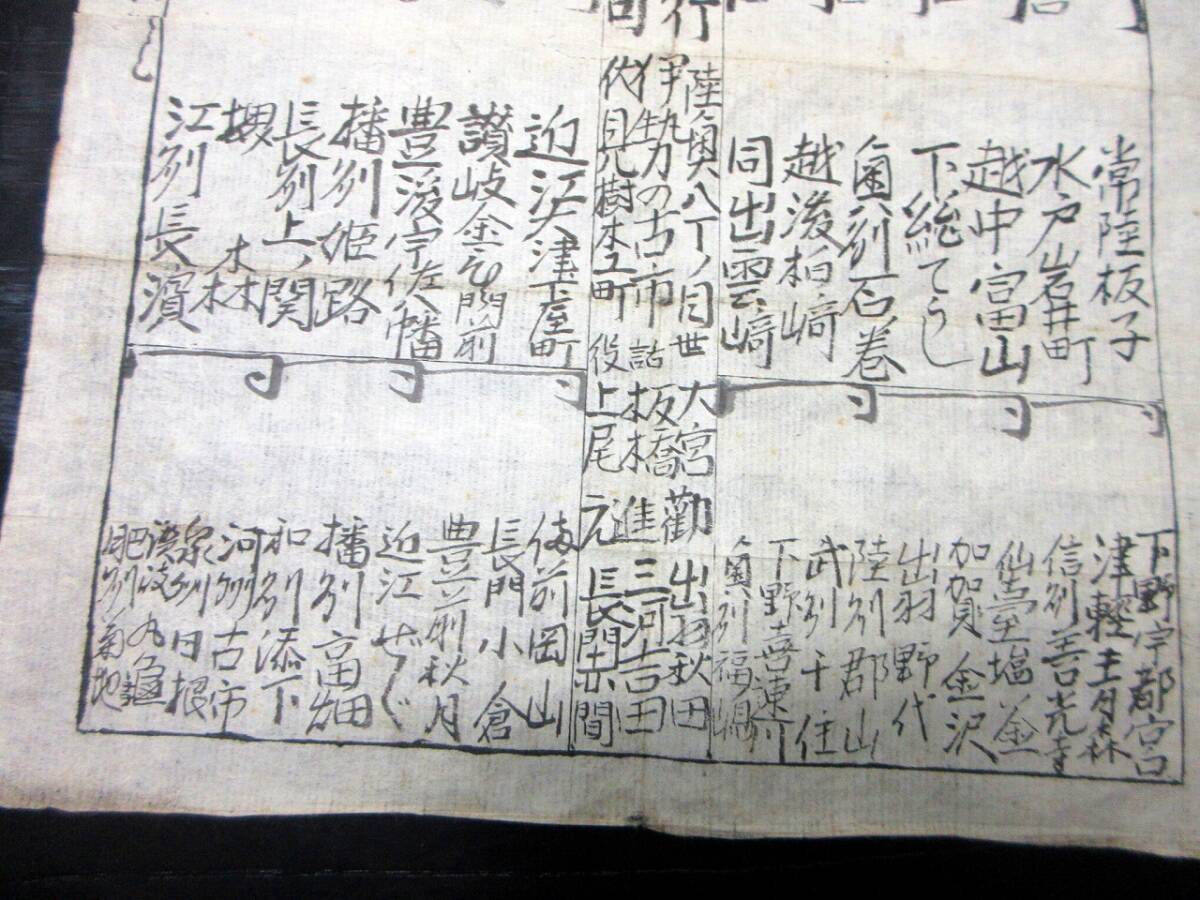 常陸板子
水戸岩井町
越中富山
下総てうし
奥刕石巻
越後柏﨑
同出雲﨑
行
司
陸奥八丁ノ目
伊勢の古市
伏見樹木町
世話役
近江大津下屋町
讃岐金ひ門前
豊後宇佐八幡
播刕姫路
長刕上ノ関
摂
江刕長濱
下野宇都宮
津軽
信刕善光寺
仙臺塩釜
加賀金沢
出羽野代
陸刕郡山
武刕千住
下野喜連川
奥刕福嶋
大宮
板橋
上尾
勧進元
出羽秋田
三河吉田
長門赤間
備前岡山
長門小倉
豊前秋月
近江ぜゞ
播刕高畑
和刕添下
河州古市
泉州日根
讃岐丸亀
肥刕菊地